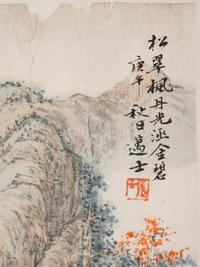 松翠楓丹光逐金碧
庚午秋日邁士